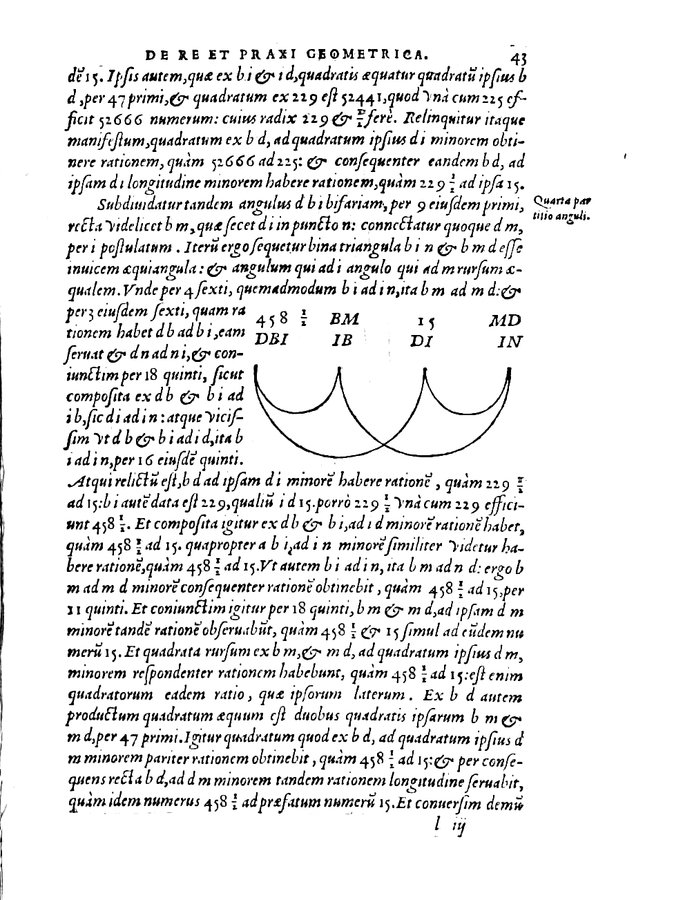 DE RE ET PRAXI GEOMETRICA. 43
dẽ 15. Ipſis autem, quæ ex b i & i d, quadratis æquatur quadratũ ipſius b
d, per 47 primi, & quadratum ex 229 eſt 52441, quod vnà cum 225 ef-
ficit 52666 numerum: cuius radix 229 & 1/2 ferè. Relinquitur itaque
manifeſtum, quadratum ex b d, ad quadratum ipſius d i minorem obti-
nere rationem, quàm 52666 ad 225: & conſequenter eandem b d, ad
ipſam d i longitudine minorem habere rationem, quàm 229 1/2 ad ipſa 15.
Subdiuidatur tandem angulus d b i bifariam, per 9 eiuſdem primi,
Quarta par
titio anguli.
recta videlicet b m, quæ ſecet d i in puncto n: connectatur quoque d m,
per i poſtulatum. Iterũ ergo ſequetur bina triangula b i n & b m d eſſe
inuicem æquiangula: & angulum qui ad i angulo qui ad m rurſum æ-
qualem. Vnde per 4 ſexti, quemadmodum b i ad i n, ita b m ad m d: &
per 3 eiuſdem ſexti, quam ra
tionem habet d b ad b i, eam
ſeruat & d n ad n i, & con-
iunctim per 18 quinti, ſicut
compoſita ex d b & b i ad
i b, ſic d i ad i n: atque viciſ-
ſim vt d b & b i ad i d, ita b
i ad i n, per 16 eiuſdẽ quinti.
458 1/2 BM 15 MD
DBI IB DI IN
Atqui relictũ eſt, b d ad ipſam d i minorẽ habere rationẽ, quàm 229 1/2
ad 15: b i autẽ data eſt 229, qualiũ i d 15. porrò 229 1/2 vnà cum 229 effici-
unt 458 1/2. Et compoſita igitur ex d b & b i, ad i d minorẽ rationẽ habet,
quàm 458 1/2 ad 15. quapropter a b i, ad i n minorẽ ſimiliter videtur ha-
bere rationẽ, quàm 458 1/2 ad 15. Vt autem b i ad i n, ita b m ad n d: ergo b
m ad m d minorẽ conſequenter rationẽ obtinebit, quàm 458 1/2 ad 15, per
11 quinti. Et coniunctim igitur per 18 quinti, b m & m d, ad ipſam d m
minorẽ tandẽ rationẽ obſeruabũt, quàm 458 1/2 & 15 ſimul ad eũdem nu
merũ 15. Et quadrata rurſum ex b m, & m d, ad quadratum ipſius d m,
minorem reſpondenter rationem habebunt, quàm 458 1/2 ad 15: eſt enim
quadratorum eadem ratio, quæ ipſorum laterum. Ex b d autem
productum quadratum æquum eſt duobus quadratis ipſarum b m &
m d, per 47 primi. Igitur quadratum quod ex b d, ad quadratum ipſius d
m minorem pariter rationem obtinebit, quàm 458 1/2 ad 15: & per conſe-
quens recta b d, ad d m minorem tandem rationem longitudine ſeruabit,
quàm idem numerus 458 1/2 ad præfatum numerũ 15. Et conuerſim demũ
l iij